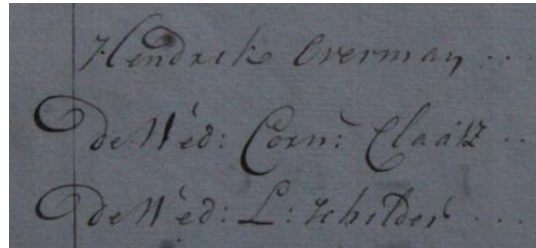 Hendrik Overman ...
de Wed: Corn: Claasz ..
de Wed: L: Schilder ...